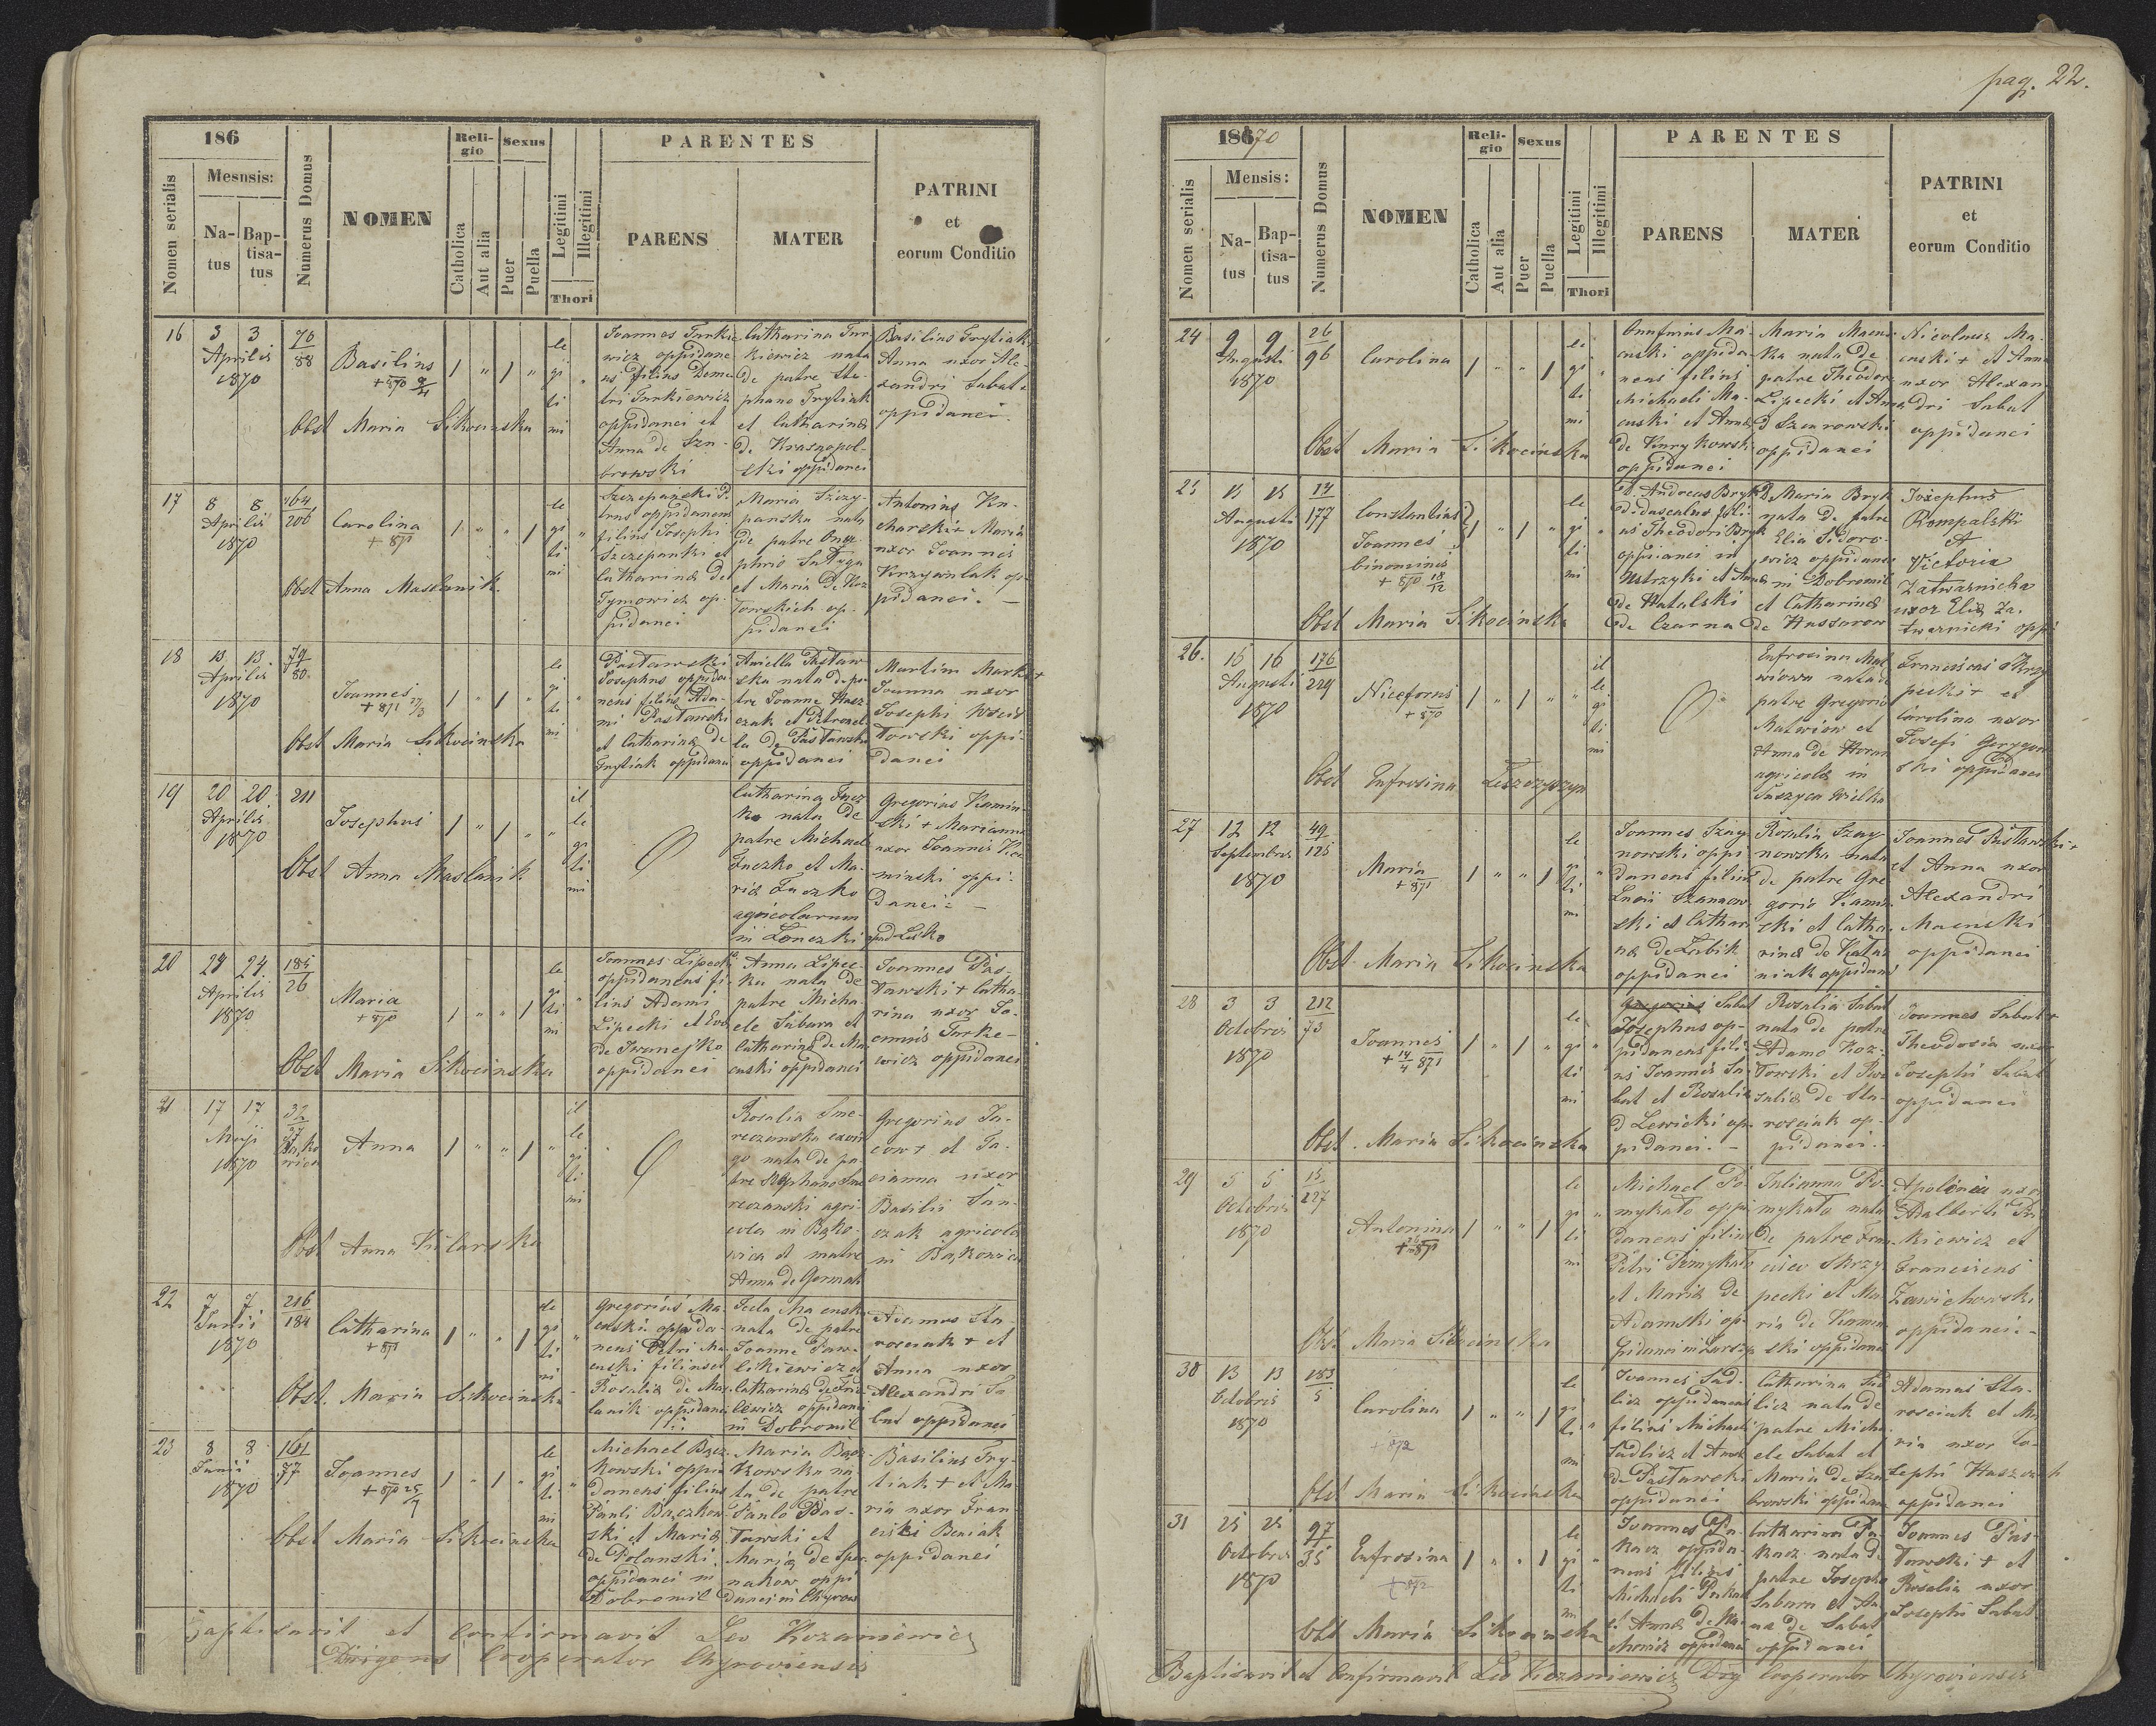 186
Nomen serialis
Mesnsis:
Na-
tus
Bap-
tisa-
tus
Numerus Domus
NOMEN
Reli-
gio
Catholica
Aut alia
Sexus
Puer
Puella
Legitimi
Illegitimi
Thori
PARENTES
PARENS
MATER
PATRINI
et
eorum Conditio
16
3 3
Aprilis
1870
70
88
Basilius
+ 870
Obst Maria Sikocinska
le
gi
ti
mi
Joannes Turkie
wicz oppidane
us filius Deme
tri Turkiewicz
oppidanei et
Anna de Sza-
browski
Catharina Tur
kiewicz nata
de patre Ste-
phano Trytiak
et Catharina
de Krasnopol-
ski oppidanei
Basilius Trytiak
Anna uxor Ale-
xandri Sabat
oppidanei
17
8 8
Aprilis
1870
164
206
Carolina
+ 871
Obst Anna Maslanik
le
gi
ti
mi
oppidaneus
filius Josephi
Szczepanski et
Catharina de
Tymowicz op-
pidanei
Maria Szczy-
panska nata
de patre Onu-
phrio
et Maria de Koz
łowskich op-
pidanei
Antonius Ku-
charski + Maria
uxor Joannis
Krzywulak op-
pidanei. —
18
13 13
Aprilis
1870
79
80
Joannes
+ 871
Obst Maria Sikocinska
le
gi
ti
mi
Pastawski
Josephus oppida
neus filius Ada-
mi Pastawski
et Catharina de
Trytiak oppidanei
Aniella Pastaw
ska nata de pa-
tre Joanne Hasz
czak et Petronel
la de Pastawska
oppidanei
Martin +
Joanna uxor
Josephi
oppi-
danei
19
20 20
Aprilis
1870
211
Josephus
Obst Anna Maslanik
il
le
gi
ti
mi
Catharina Fucz
ko nata de
patre Michael
Fuczko et Ma-
ria Fuczko
agricolarum
in Łonczki
Gregorius Kamin
ski + Marianna
uxor Joannis Ka
minski oppi-
danei. —
20
24 24
Aprilis
1870
185
26
Maria
+ 870
Obst Maria Sikocinska
le
gi
ti
mi
Joannes Lipecki
oppidaneus fi-
lius Adami
Lipecki et Eva
de Iwanejko
oppidanei
Anna Lipec-
ka nata de
patre Micha
ele Subara et
Catharina de Ma
cuski oppidanei
Joannes Pas-
tawski + Catha-
rina uxor Jo-
annis Turke-
wicz oppidanei
21
17 17
Maji
1870
32
27
Anna
Obst Anna
il
le
gi
ti
mi
Rosalia Sme-
reczanska
nata de pa-
tre Stephano Sme
reczanski agri-
cola in Bąko-
wica et matre
Anna de
Gregorius Ja-
cow + et Ta-
cianna uxor
Basilii
agricola
in Bąkowica
22
7 7
Junii
1870
216
184
Catharina
+ 871
Obst. Maria Sikocinska
le
gi
ti
mi
Gregorius Ma-
cuski oppida-
neus Petri Ma-
cuski filius et
Rosalia de Mas-
lanik oppidanei
Tecla Macuska
nata de patre
Joanne Paw-
likiewicz et
Catharina de
oppidanei
in Dobromil
Adamus Sta-
rosciak + et
Anna uxor
Alexandri Sa
bat oppidanei
23
8 8
Junii
1870
161
77
Joannes
+ 870
Obst Maria Sikocinska
le
gi
ti
mi
Michael Bącz-
kowski oppi-
daneus filius
Pauli Bączkow-
ski et Maria
de Polanski
oppidanei in
Dobromil
Maria Bącz-
kowska na-
ta de patre
Paulo Pas-
tawski et
Maria de
oppi
danei in Chyrow
Basilius Try-
tiak + et Ma
ria uxor Fran
ciski Beniak
oppidanei
Baptisavit et Confirmavit Leo Kozaniewicz
Dirigens Cooperator Chyroviensis
pag. 22.
18670
Nomen serialis
Mensis:
Na-
tus
Bap-
tisa-
tus
Numerus Domus
NOMEN
Reli-
gio
Catholica
Aut alia
Sexus
Puer
Puella
Legitimi
Illegitimi
Thori
PARENTES
PARENS
MATER
PATRINI
et
eorum Conditio
24
9 9
Augusti
1870
26
96
Carolina
Obst Maria Sikocinska
le
gi
ti
mi
Onufrius Ma-
cuski oppida-
neus filius
Michaeli Ma-
cuski et Anna
de
oppidanei
Maria Macus
ka nata de
patre Theodor
Lipecki et Anna
oppidanei
Nicolaus Ma-
cuski + et Anna
uxor Alexan
dri Sabat
oppidanei
25
15 15
Augusti
1870
14
177
Constantius
Joannes
binominis
+ 870 18/12
Obst Maria Sikocinska
le
gi
ti
mi
Andreas Bryk
Didascalus fili-
us Theodori Bryk
oppidanei in
Ustrzyki et Anna
de Hatalski
de Czarna
Maria Bryk
nata de patre
Elia Sidoro-
wicz oppidanei
in Dobromil
et Catharina
de
Josephus
Rompalski
et
Victoria
Zatwarnicka
uxor Elia Za-
twarnicki oppi
26.
16 16
Augusti
1870
176
229
Niceforus
+ 870
Obst Eufrosina
il
le
gi
ti
mi
Eufrosina Mat
wiowa nata de
patre Gregorio
Matwiow et
Anna de
agricola in
Suszyca Wielka
Franciscus Skrzy
pecki + et
Carolina uxor
Josefi
oppidanei
27
12 12
Septembris
1870
49
125
Maria
+ 871
Obst. Maria Sikocinska
le
gi
ti
mi
Joannes Szay
nowski oppi
daneus filius
ski et Cathar
na de Łabik
oppidanei
Rosalia Szay
nowska nata
de patre Gre
gorio Kamin
ski et Catha-
rina de
oppidanei
Joannes Pastawski +
et Anna uxor
Alexandri
Macuski
oppidanei
28
3 3
Octobris
1870
212
73
Joannes
+ 14/4 871
Obst. Maria Sikocinska
le
gi
ti
mi
Gregorius Sabat
Josephus op-
pidaneus fili-
us Joannis Sa-
bat et Rosalia
d Lewicki op-
pidanei. —
Rosalia Sabat
nata de patre
Adamo Koz-
łowski et Ro-
salia de Sta-
rosciak op-
pidanei.
Joannes Sabat +
Theodosia uxor
Josephi Sabat
oppidanei
29
5 5
Octobris
1870
15
227
Antonina
+ 871
Obst. Maria Sikocinska
le
gi
ti
mi
Michael Po-
mykało oppi
daneus filius
Petri Pomykało
et Maria de
Adamski op-
pidanei in
Julianna Po-
mykało nata
de patre Fran
cisco Skrzy-
pecki et Ma
ria de Kamin
ski oppidanei
Apolonia uxor
Adalberti
kiewicz et
Franciscus
Zawichowski
oppidanei. -
30
13 13
Octobris
1870
183
5
Carolina
+ 872
Obst Maria Sikocinska
le
gi
ti
mi
Joannes Sad-
licz oppidaneus
filius Michaeli
Sadlicz et Anna
de Pastawski
oppidanei
Catharina Sad
licz nata de
patre Micha-
ele Sabat et
Maria de Sza
browski oppidanei
Adamus Sta-
rosciak et Ma
ria uxor Jo-
sephi Haszczak
oppidanei
31
25 25
Octobris
1870
97
35
Eufrosina
+ 872
Obst Maria Sikocinska
le
gi
ti
mi
Joannes Pu-
kacz oppida-
neus filius
Michaeli Pukacz
et Anna de
oppidanei
Catharina Pu-
kacz nata de
patre Josepho
Subara et An-
na de Sabat
oppidanei
Joannes Pas-
tawski + et
Rosalia uxor
Josephi Sabat
Baptisavit et Confirmavit Leo Kozaniewicz Dirig Cooperator Chyroviensis